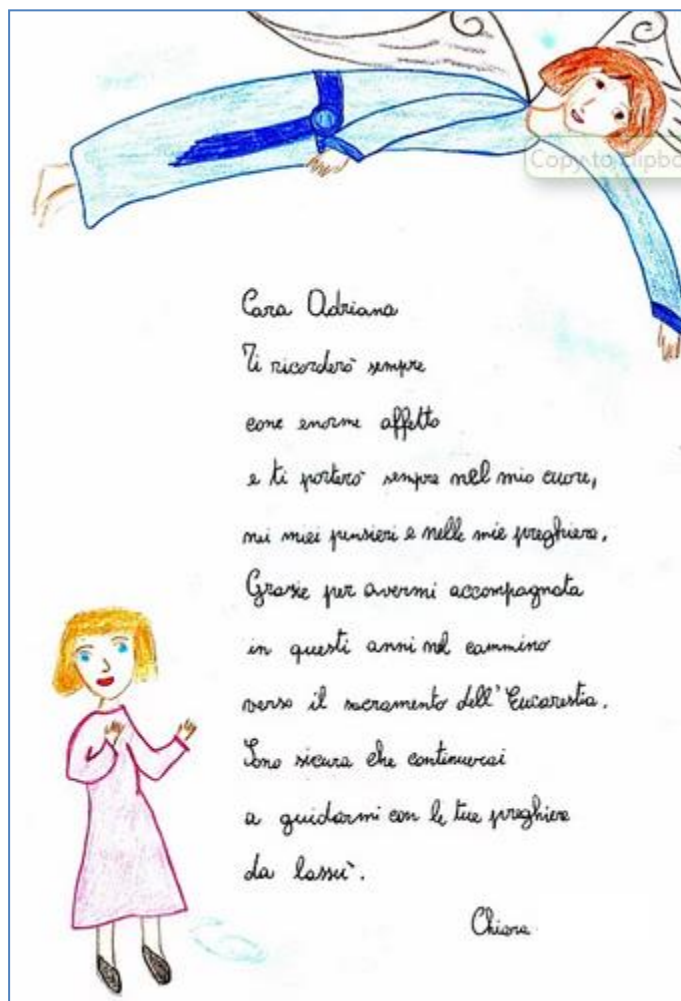 Copy to clipbo
Cara Adriana
Ti ricorderò sempre
cone enorme affetto
e ti porterò sempre nel mio cuore,
nei miei pensieri e nelle mie preghiere.
Grazie per avermi accompagnata
in questi anni nel cammino
verso il sacramento dell'Eucarestia.
Sono sicura che continuerai
a guidarmi con le tue preghiere
da lassù.
Chiara